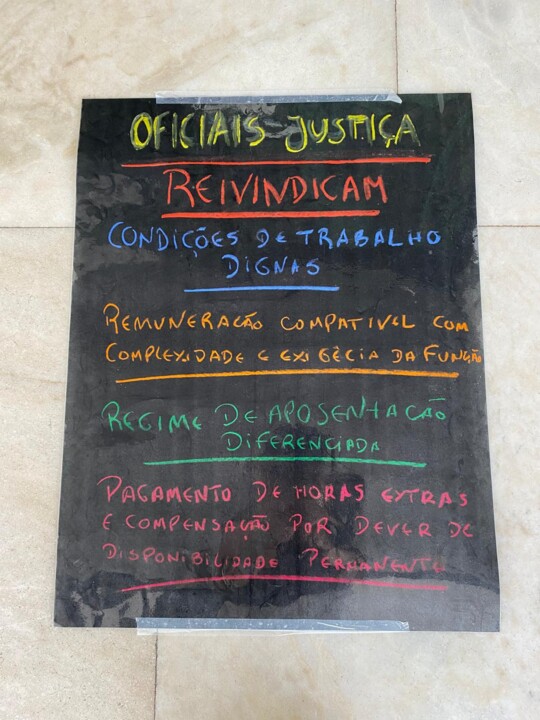 OFICIAIS JUSTIÇA
REIVINDICAM
CONDIÇÕES DE TRABALHO
DIGNAS
REMUNERAÇÃO COMPATIVEL COM
COMPLEXIDADE E EXIGÊCIA DA FUNÇÃO
REGIME DE APOSENTAÇÃO
DIFERENCIADA
PAGAMENTO DE HORAS EXTRAS
E COMPENSAÇÃO POR DEVER DE
DISPONIBILIDADE PERMANENTE